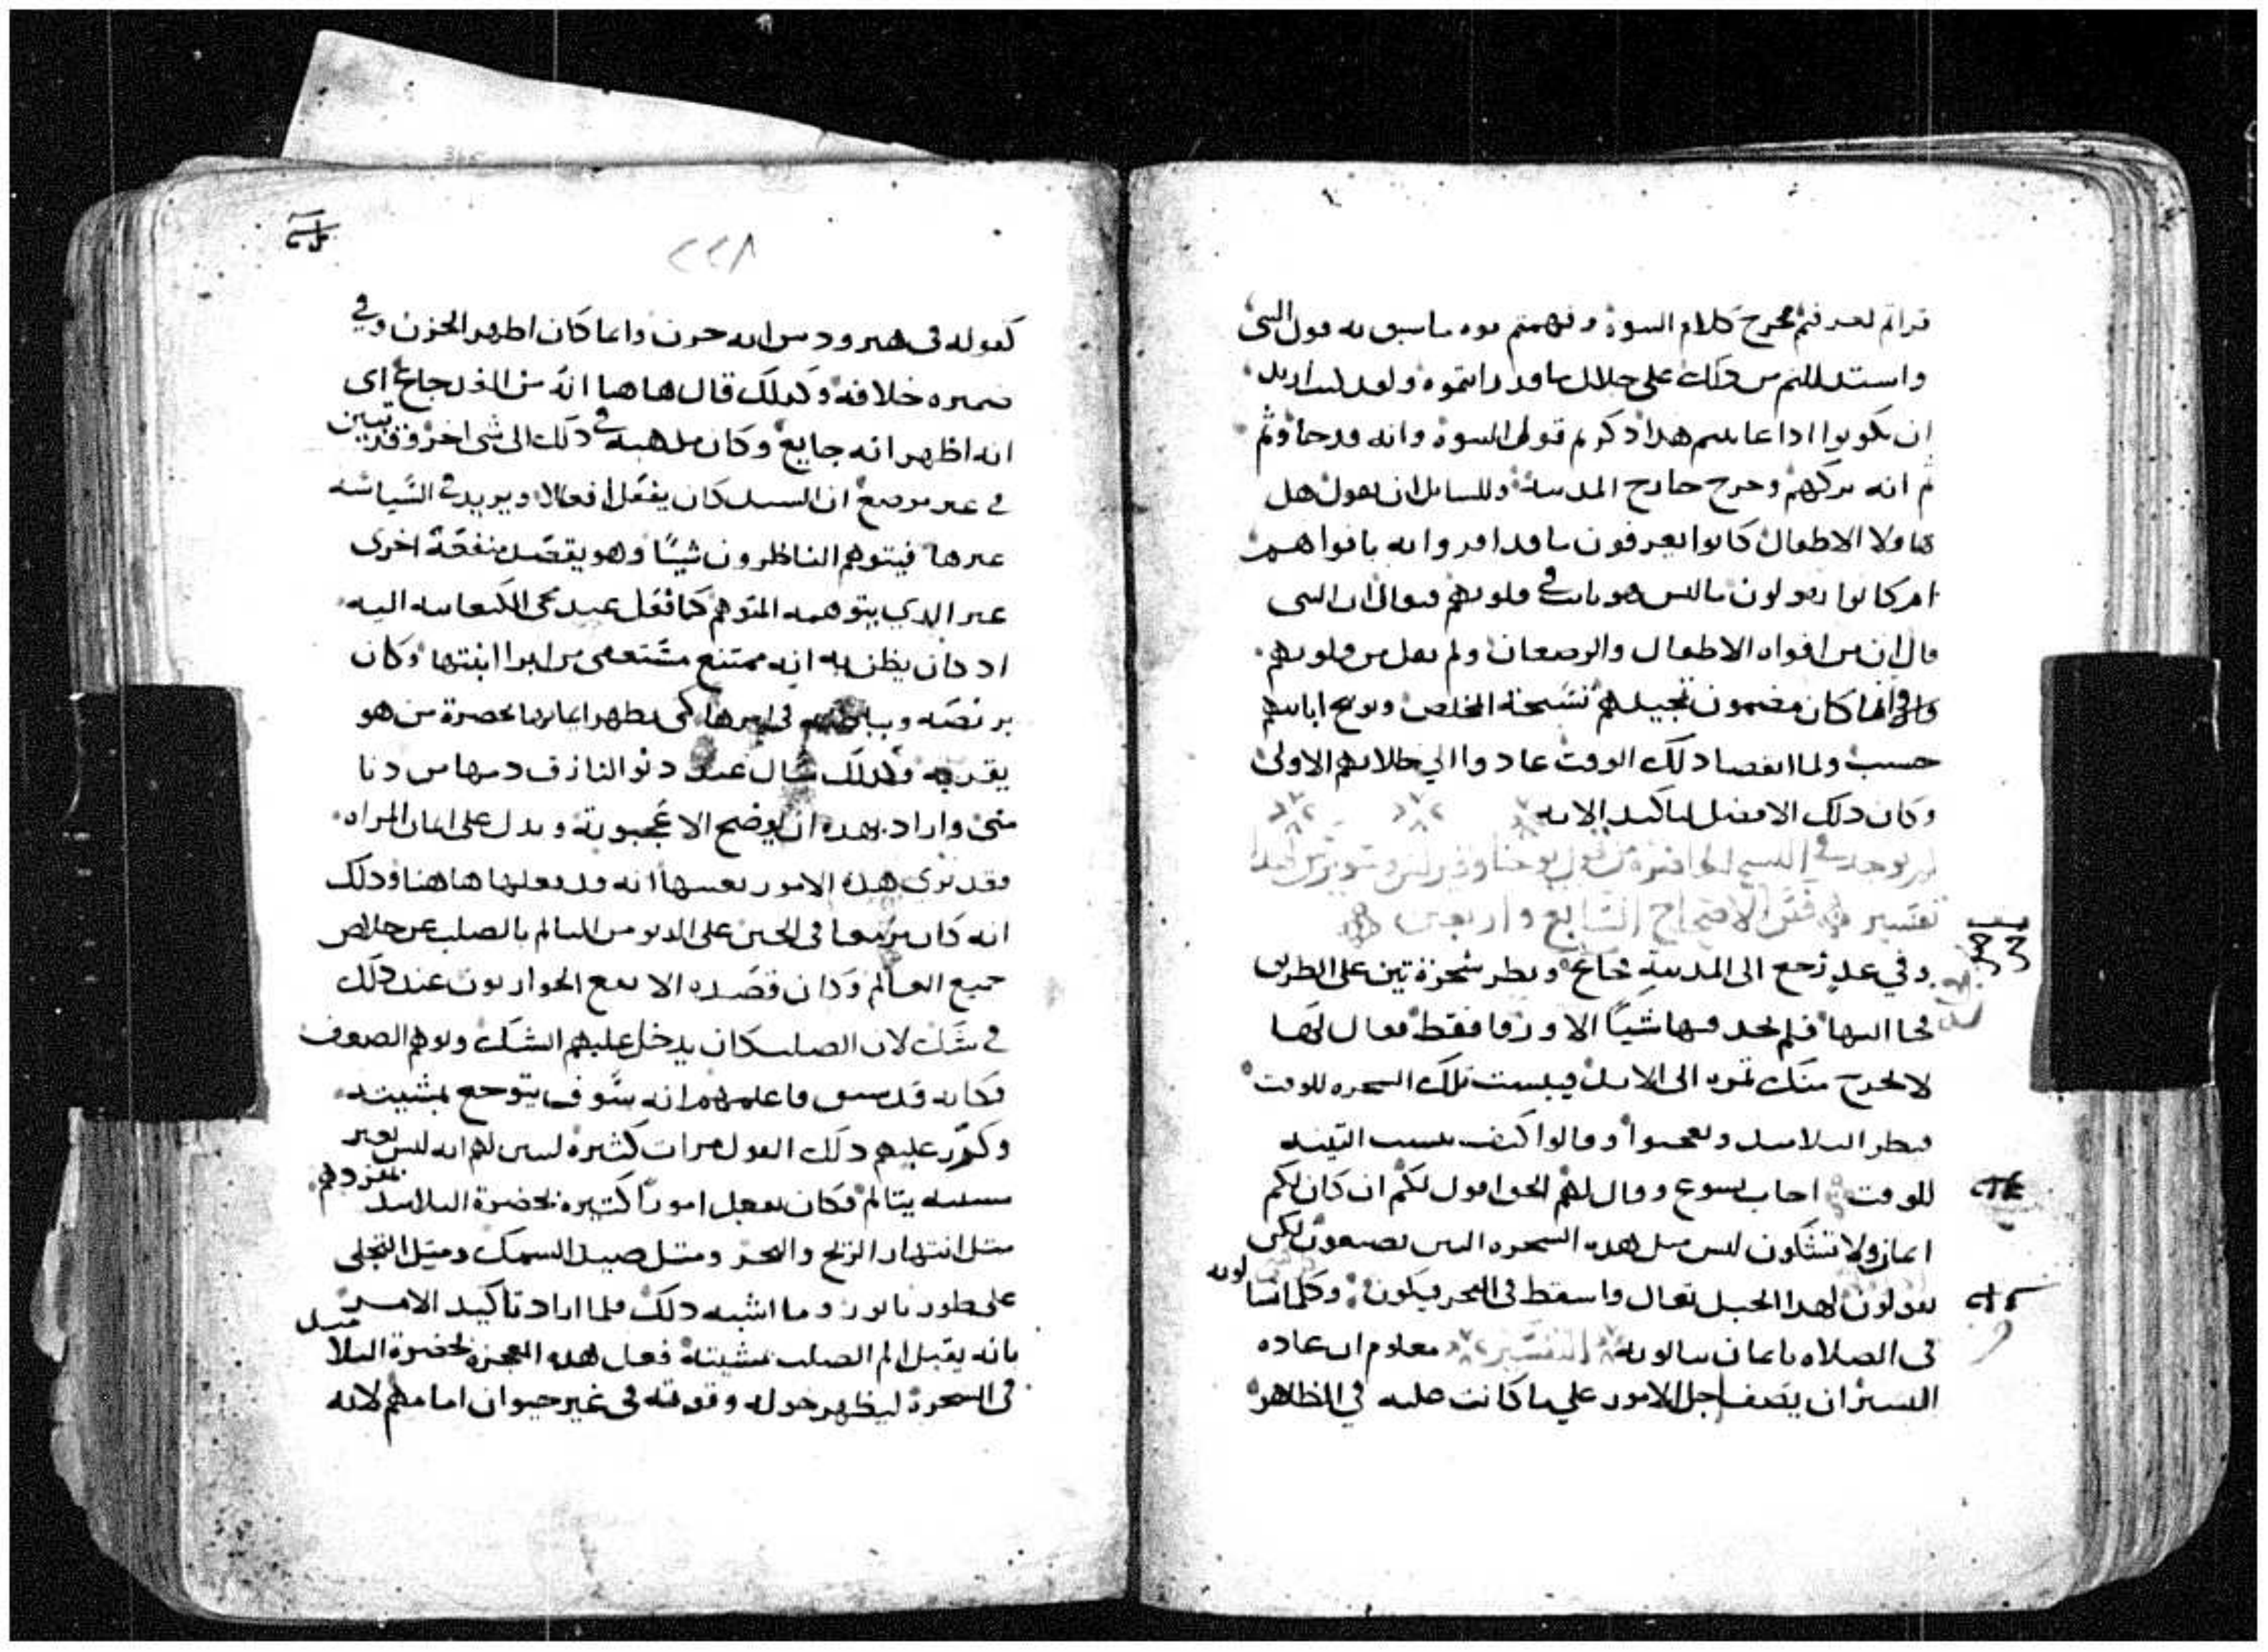 قراتم لعرفتم مخرج كلام النبوة وفهمتم قوه ما سبق به قول النبي
واستدللتم من ذلك على جلال ما قد رايتموه ولقد
ان تكونوا اذا عاينتم هذا ذكرتم قول النبوة وانه قد جا وتم
ثم انه تركهم وخرج خارج المدينة وللسايل ان يقول هل
هاولا الاطفال كانوا يعرفون ما قد اقروا به بافواههم
ام كانوا يقولون ما ليس هو ثابت في قلوبهم فيقال ان النبي
قال ان من افواه الاطفال والرضعان ولم يقل من قلوبهم
وانما كان مضمون تمجيدهم تسبحة المخلص وتوبيخ ابايهم
حسب ولما انقضا ذلك الوقت عادوا الي حالاتهم الاولى
وكان ذلك الافضل لتاكيد الايه
لم يوجد في النسخ الحاضرة من قول يوحنا وكيرلس وسويرس ايضا
تفسير في فص الاصحاح السابع واربعين
وفي غدٍ رجع الى المدينة فجاع ونظر شجرة تين على الطريق
فجا اليها فلم يجد فيها شيًا الا ورقا فقط فقال لها
لا يخرج منك ثمره الى الابد فيبست تلك الشجره للوقت
فنظر التلاميذ وتعجبوا وقالوا كيف يبست التينه
للوقت اجاب يسوع وقال لهم الحق اقول لكم ان كان لكم
ايمان ولا تشكون ليس مثل هذه الشجره التين تصنعون لكن
تقولون لهذا الجبل تعال واسقط في البحر فيكون وكلما تسالونه
في الصلاه بايمان تنالونه التفسير معلوم ان عاده
البشير ان يصف اجل الامور علي ما كانت عليه في الظاهر
٢٢٨
كقوله في هيرودس انه حزن وانما كان اظهر الحزن وفي
ضميره خلافه وكذلك قال هاهنا انه من الغد جاع اي
انه اظهر انه جايع وكان مذهبه في ذلك الى شي اخر وقد تبين
في غير موضع ان السيد كان يفعل افعالا ويريد في السياسة
غيرها فيتوهم الناظرون شيًا وهو يقصد منفعة اخرى
غير الذي يتوهمه المتوهم كما فعل عند مجى الكنعانيه اليه
اذ كان يظن به انه ممتنع مستعفى من ابرا ابنتها وكان
يرفضه في امرها كى يظهر ايمانها بحضرة من هو
بقربه وكذلك سال عند دنو النازف دمها من دنا
منى واراد بهذه ان يوضح الاعجوبة ويدل على ايمان المراه
وقد نرى هذه الامور بعينها انه قد فعلها هاهنا وذلك
انه كان مزمعا في الحين على الدنو من التالم بالصلب عن خلاص
جميع العالم وكان قصده الا يقع الحواريون عند ذلك
في شك لان الصلب كان يدخل عليهم الشك وتوهم الضعف
فكانه قد سبق فاعلمهم انه سوف يتوجع بمشيته
وكرّر عليهم ذلك القول مرات كثيره ليبين لهم انه ليس بغير
مشيته يتالم فكان يفعل امورًا كثيره بحضرة التلاميذ بمفردهم
مثل انتهار الريح والبحر ومثل صيد السمك ومثل التجلى
على طور تابور وما اشبه ذلك فلما اراد تاكيد الامر
بانه يقبل الم الصلب بمشيته فعل هذه المعجزه بحضرة التلاميذ
في الشجرة ليظهر حوله وقوته في غير حيوان امامهم لانه